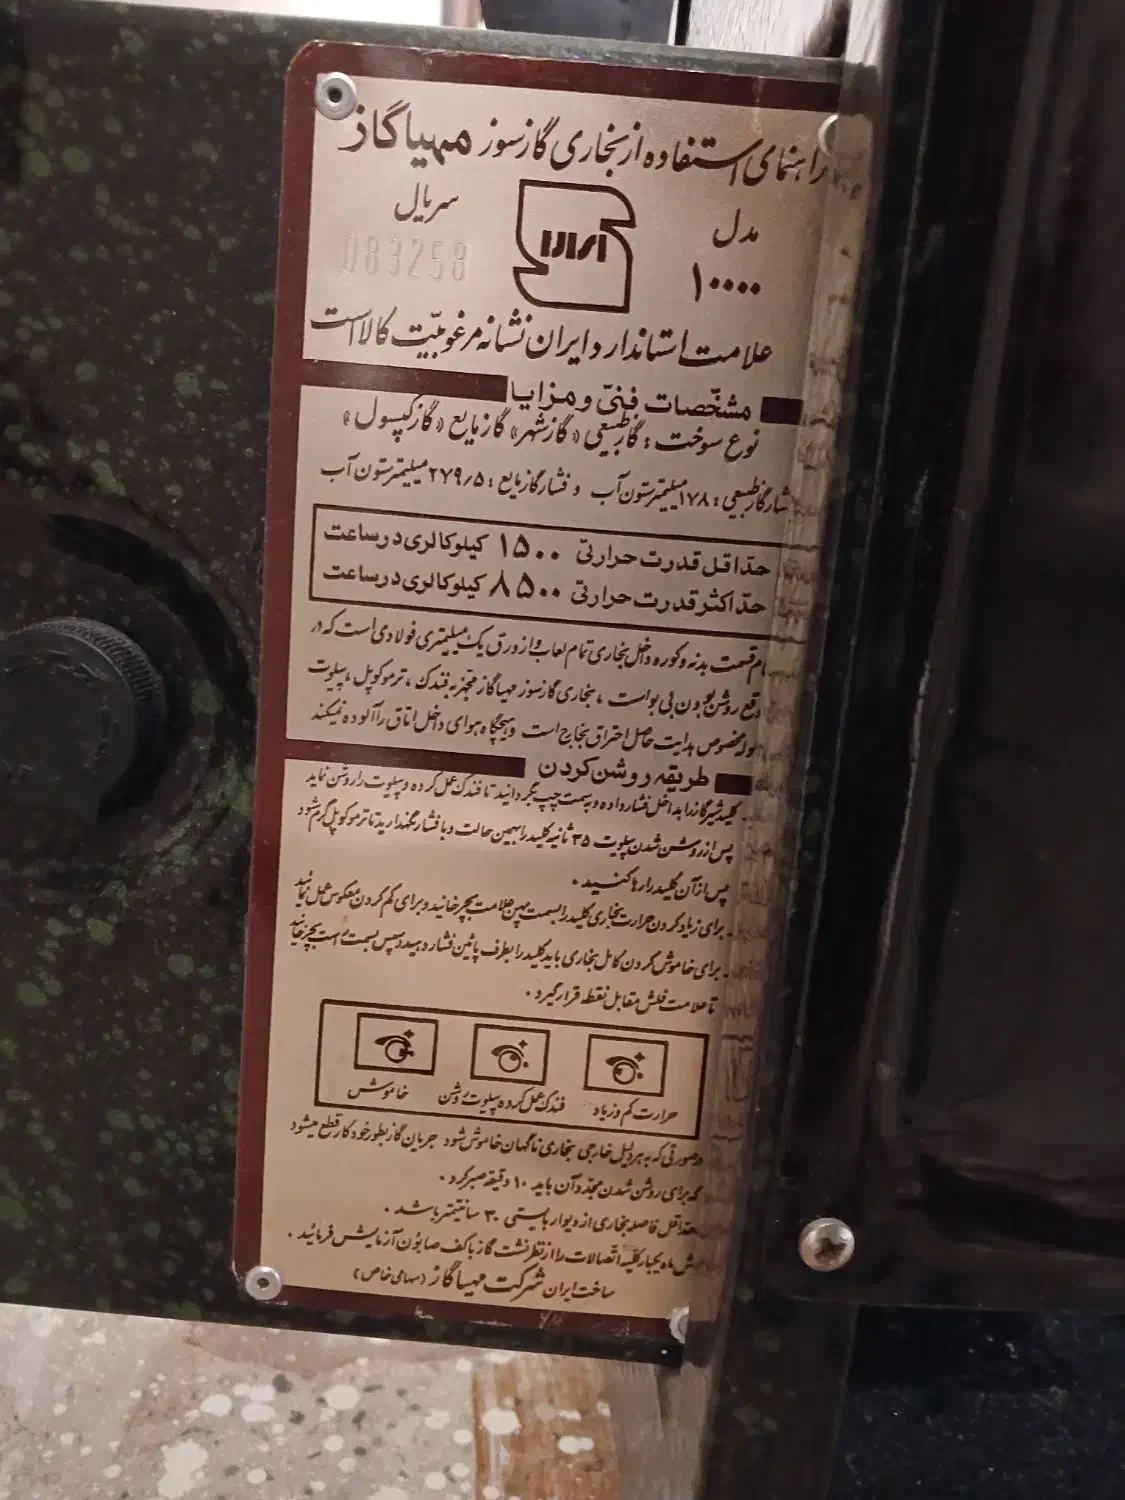 راهنمای استفاده از بخاری گازسوز مهیاگاز
مدل
۱۰۰۰۰
سریال
083258
علامت استاندارد ایران نشانه مرغوبیّت کالا است
مشخّصات فنیّ و مزایا
نوع سوخت : گاز طبیعی «گاز شهر» گاز مایع «گاز کپسول»
فشار گاز طبیعی : ۱۷۸ میلیمتر ستون آب و فشار گاز مایع : ۲۷۹٫۵ میلیمتر ستون آب
حدّاقل قدرت حرارتی ۱۵۰۰ کیلوکالری در ساعت
حدّاکثر قدرت حرارتی ۸۵۰۰ کیلوکالری در ساعت
قسمت بدنه و کوره داخل بخاری تمام لعاب و از ورق یک میلیمتری فولادی است که در
موقع روشن بودن بی بو است ، بخاری گازسوز مهیاگاز مجهز به فندک ، ترموکوپل ، پیلوت
مخصوص هدایت حاصل احتراق بخارج است و هیچگاه هوای داخل اتاق را آلوده نمیکند
طریقه روشن کردن
کلید شیر گاز را به داخل فشار داده و بسمت چپ بگردانید تا فندک عمل کرده و پیلوت را روشن نماید
پس از روشن شدن پیلوت ۳۵ ثانیه کلید را بهمین حالت و با فشار نگهدارید تا ترموکوپل گرم شود
پس از آن کلید را رها کنید .
- برای زیاد کردن حرارت بخاری کلید را بسمت پهن علامت بچرخانید و برای کم کردن معکوس عمل نمائید
- برای خاموش کردن کامل بخاری باید کلید را بطرف پائین فشار دهید سپس بسمت راست بچرخانید
تا علامت فلش مقابل نقطه قرار گیرد .
حرارت کم و زیاد
فندک عمل کرده پیلوت روشن
خاموش
در صورتی که به هر دلیل خارجی بخاری ناگهان خاموش شود جریان گاز بطور خودکار قطع میشود
که برای روشن شدن مجدد آن باید ۱۰ دقیقه صبر کرد .
حداقل فاصله بخاری از دیوار بایستی ۳۰ سانتیمتر باشد .
شش ماه یکبار کلیه اتصالات را از نظر نشت گاز با کف صابون آزمایش فرمائید .
ساخت ایران شرکت مهیاگاز (سهامی خاص)